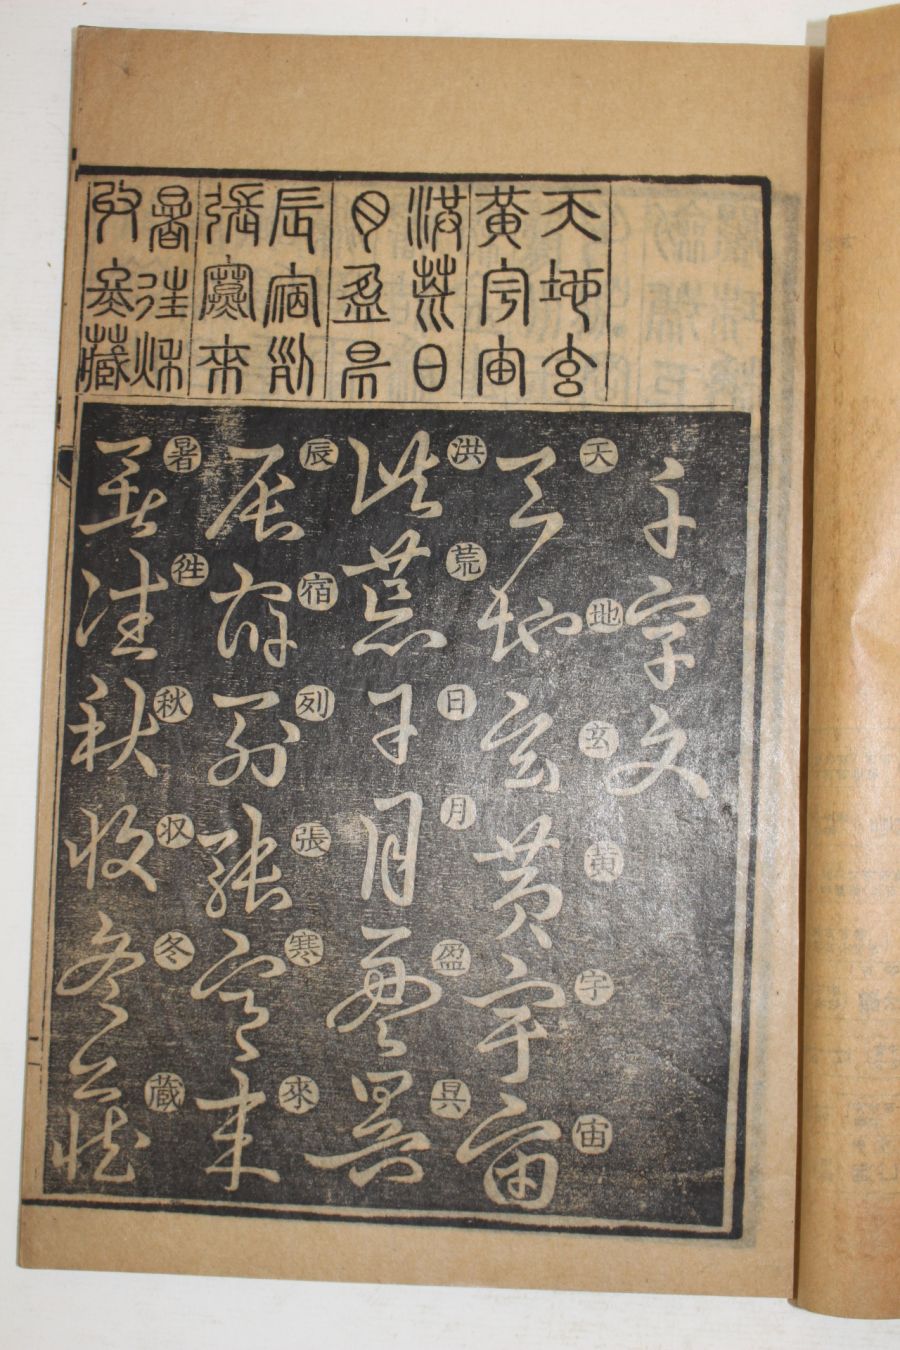 天地玄
黃宇宙
洪荒日
月盈昃
辰宿列
張寒來
暑往秋
收冬藏
千字文
天地玄黄宇宙
天地玄黄宇宙
洪荒日月盈昃
洪荒日月盈昃
辰宿列張寒來
辰宿列張寒来
暑徃秋収冬蔵
暑往秋收冬藏